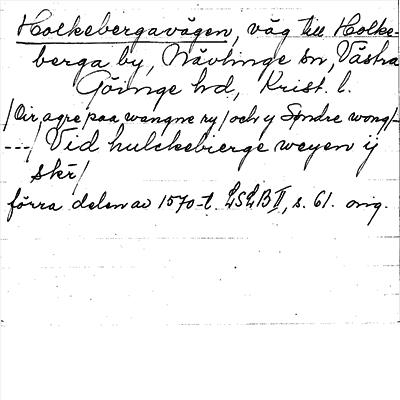 Holkebergavägen, väg till Holke-
berga by, Nävlinge sn, Västra
Göinge hd, Krist. l.
/Oir, agre paa wangne ry/och y Søndre wong/-
---/ Vid hulckebierge weyen ij
skr/
förra delen av 1570-t. LSLB II, s. 61. orig.